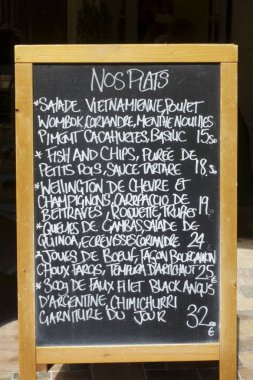 NOS PLATS
*SALADE VIETNAMIENNE, POULET
WOMBOK, CORIANDRE, MENTHE NOUILLES
PIMENT CACAHUETES, BASILIC 15,50
* FISH AND CHIPS, PURÉE DE
PETITS POIS, SAUCE TARTARE 18,50
*WELLINGTON DE CHEVRE ET
CHAMPIGNONS, CARPACCIO DE
BETTRAVES, ROQUETTE, TRUFFES 19
*QUEUES DE GAMBAS, SALADE DE
QUINOA, ECREVISSES, CORIANDRE 24
*JOUES DE BOEUF, FAÇON BOURGUIGNON
CHOUX FARCIS, TEMPURA D'ARTICHAUT 25€
* 300g DE FAUX FILET BLACK ANGUS
D'ARGENTINE, CHIMICHURRI
GARNITURE DU JOUR 32,00€